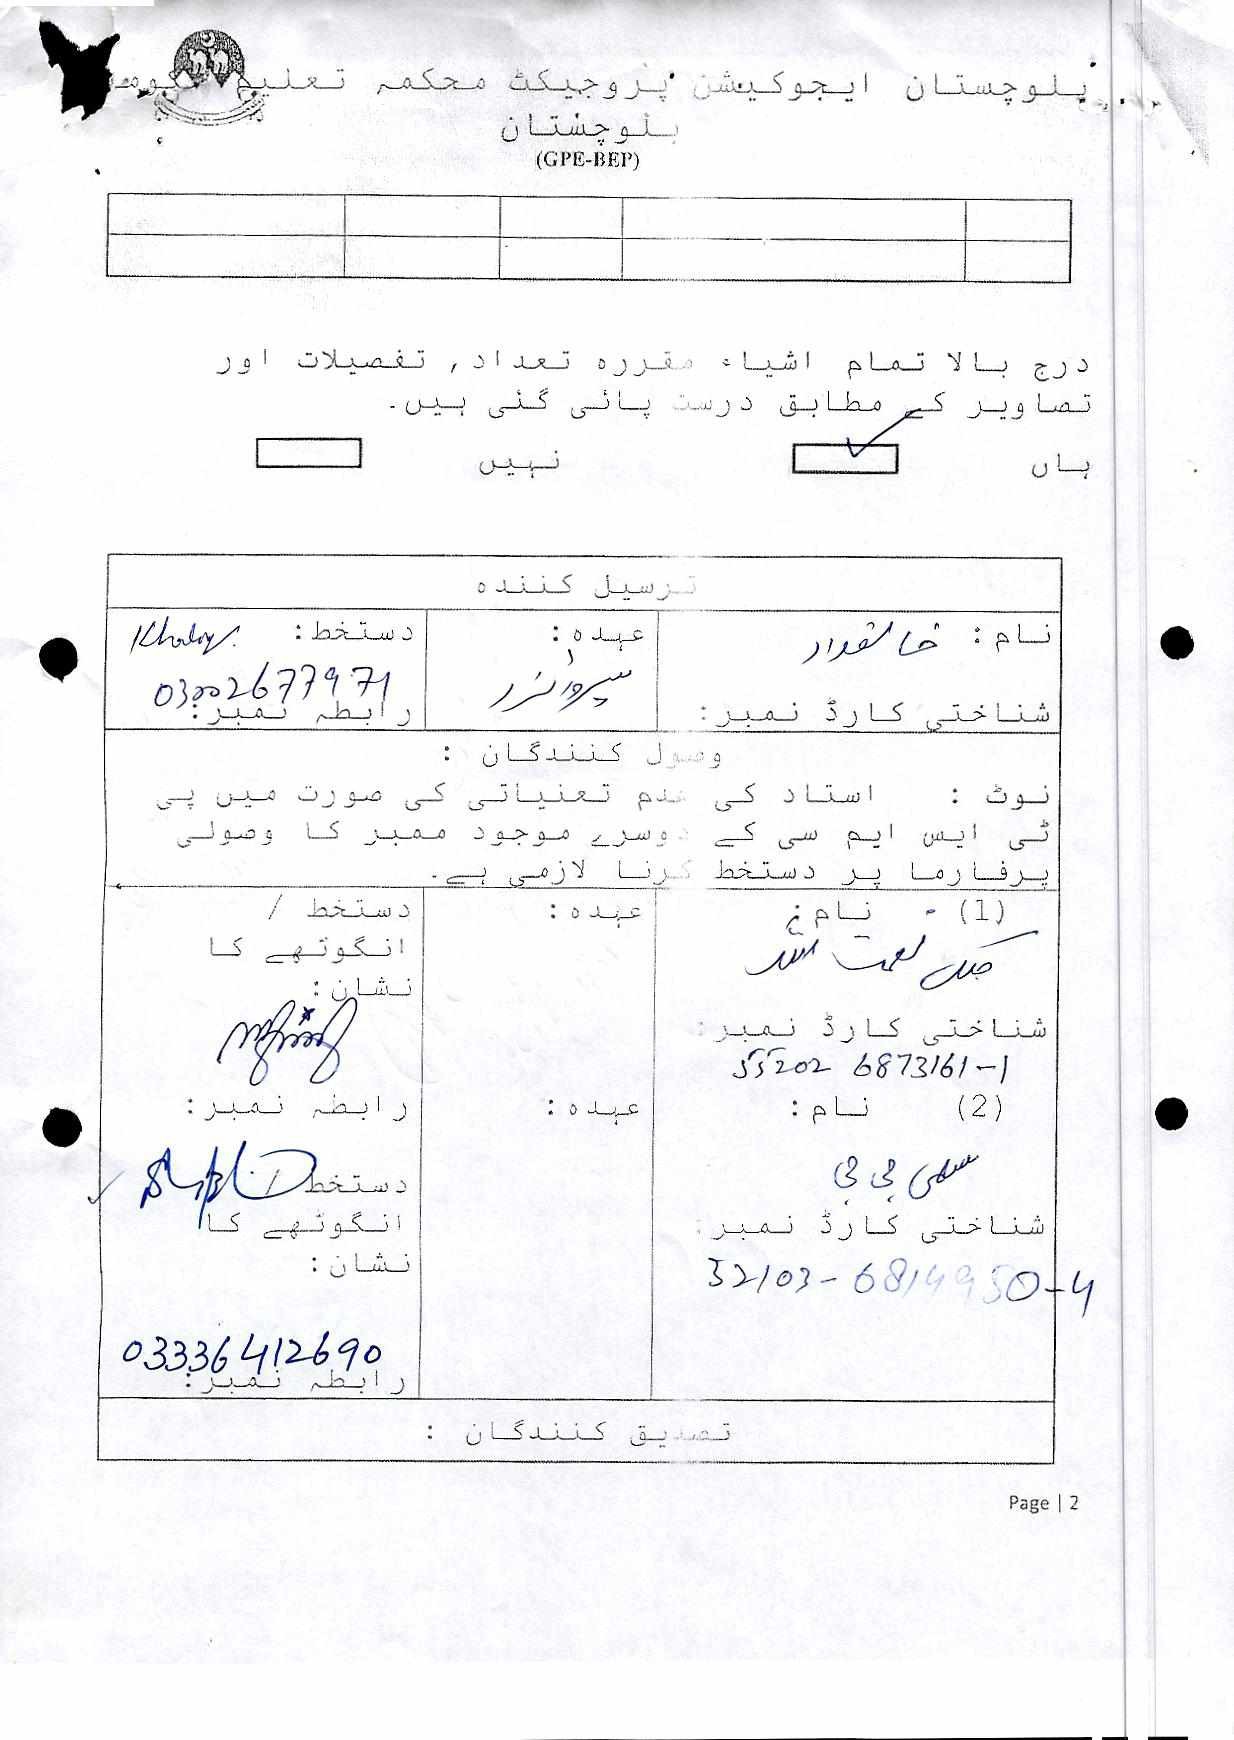 بلوچستان ایجوکیشن پروجیکٹ محکمہ تعلیم
بلوچستان
(GPE-BEP)
درج بالا تمام اشیاء مقررہ تعداد, تفصیلات اور
تصاویر کے مطابق درست پائی گئی ہیں۔
ہاں نہیں
ترسیل کنندہ
نام: عہدہ: دستخط:
سپروائزر
03002677971
شناختی کارڈ نمبر: رابطہ نمبر:
وصول کنندگان :
نوٹ : استاد کی عدم تعنیاتی کی صورت میں پی
ٹی ایس ایم سی کے دوسرے موجود ممبر کا وصولی
پرفارما پر دستخط کرنا لازمی ہے۔
(1) - نام: عہدہ: دستخط /
انگوٹھے کا
نعمت اللہ
نشان:
شناختی کارڈ نمبر:
55202 6873161-1
(2) نام: عہدہ: رابطہ نمبر:
بی بی
دستخط /
شناختی کارڈ نمبر: انگوٹھے کا
نشان:
52103-6814950-4
03336412690
رابطہ نمبر:
تصدیق کنندگان :
Page | 2